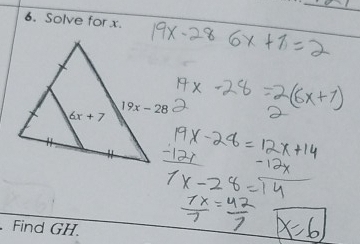 6. Solve for x.
19x-28 6x+7=2
6x + 7
19x – 28
19x -28 =2(6x+7)
2 2
19x-28=12x+14
-12x -12x
7x-28=14
7x=42
7 7
x=6
. Find GH.